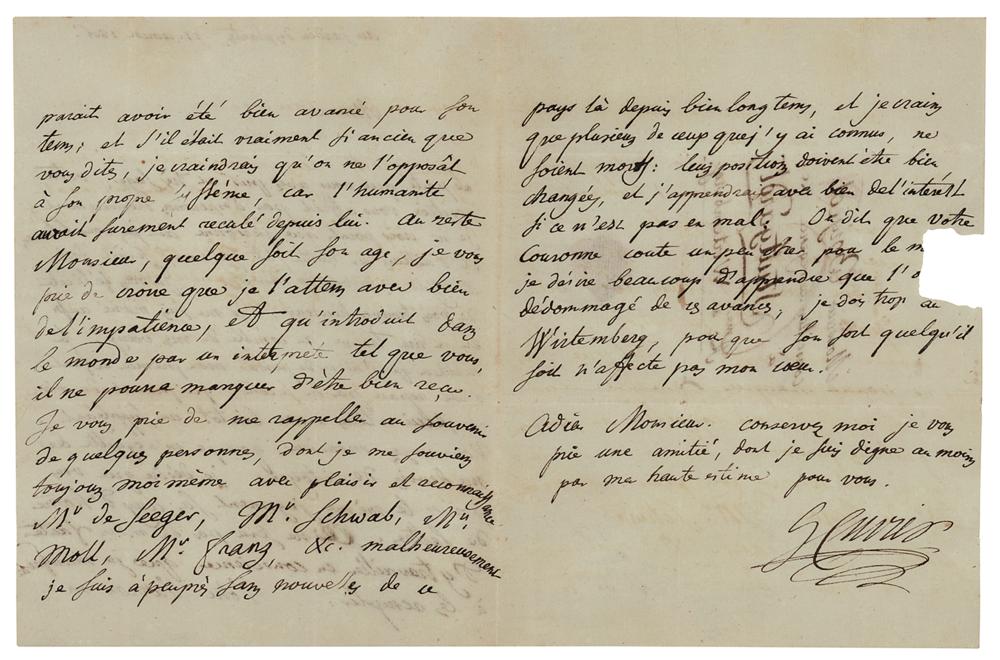 parait avoir été bien avancé pour son
tems; et s'il était vraiment si ancien que
vous dites, je craindrais qu'on ne l'opposât
à son propre système, car l'humanité
aurait surement reculé depuis lui. au reste
Monsieur, quelque soit son age, je vous
prie de croire que je l'attens avec bien
de l'impatience, et qu'introduit dans
le monde par un interprète tel que vous,
il ne pourra manquer d'être bien reçu.
Je vous prie de me rappeller au souvenir
de quelques personnes, dont je me souviens
toujours moi même avec plaisir et reconnaissance
Mr. de Seeger, Mr. Schwab, Mr.
Moll, Mr. franz &c. malheureusement
je suis àpeuprès sans nouvelles de ce
pays là depuis bien long tems, et je crains
que plusieurs de ceux que j'y ai connus, ne
soient morts: leurs positions doivent être bien
changées, et j'apprendrai avec bien de l'intérêt
si ce n'est pas en mal. On dit que votre
Couronne coute un peu cher pour le m
je désire beaucoup d'apprendre que l'o
dédommagé de ces avances, je dois trop au
Wirtemberg, pour que son sort quelqu'il
soit n'affecte pas mon cœur.
Adieu Monsieur. conservez moi je vous
prie une amitié, dont je suis digne au moins
par ma haute estime pour vous.
G Cuvier